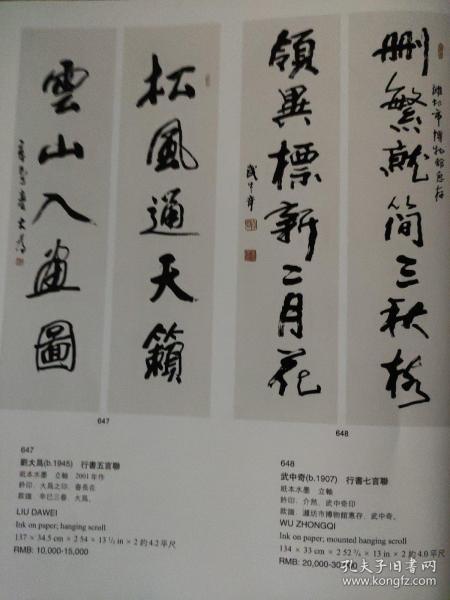 松風通天籟
雲山入畫圖
辛巳三春大為
刪繁就簡三秋樹
濰坊市博物館惠存
領異標新二月花
武中奇
647
648
647
劉大爲(b.1945) 行書五言聯
紙本水墨 立軸 2001年作
鈐印:大爲之印、春長在
款識:辛巳三春 大爲。
LIU DAWEI
Ink on paper; hanging scroll
137 × 34.5 cm × 2 54 × 13 ½ in × 2 約4.2平尺
RMB: 10,000-15,000
648
武中奇(b.1907) 行書七言聯
紙本水墨 立軸
鈐印:介然、武中奇印
款識:濰坊市博物館惠存,武中奇。
WU ZHONGQI
Ink on paper; mounted hanging scroll
134 × 33 cm × 2 52 ¾ × 13 in × 2 約4.0平尺
RMB: 20,000-30,000
孔夫子旧书网
www.kongfz.com